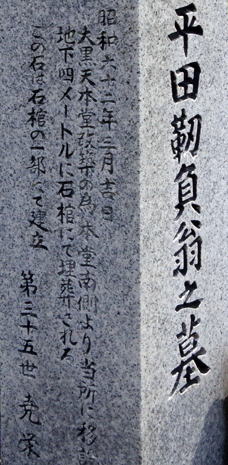 平田靱負翁之墓
昭和六十二年三月吉日
大黒天本堂改築の為本堂南側より当所に移設
地下四メートルに石棺にて埋葬される
この石は石棺の一部にて建立
第三十五世 尭栄